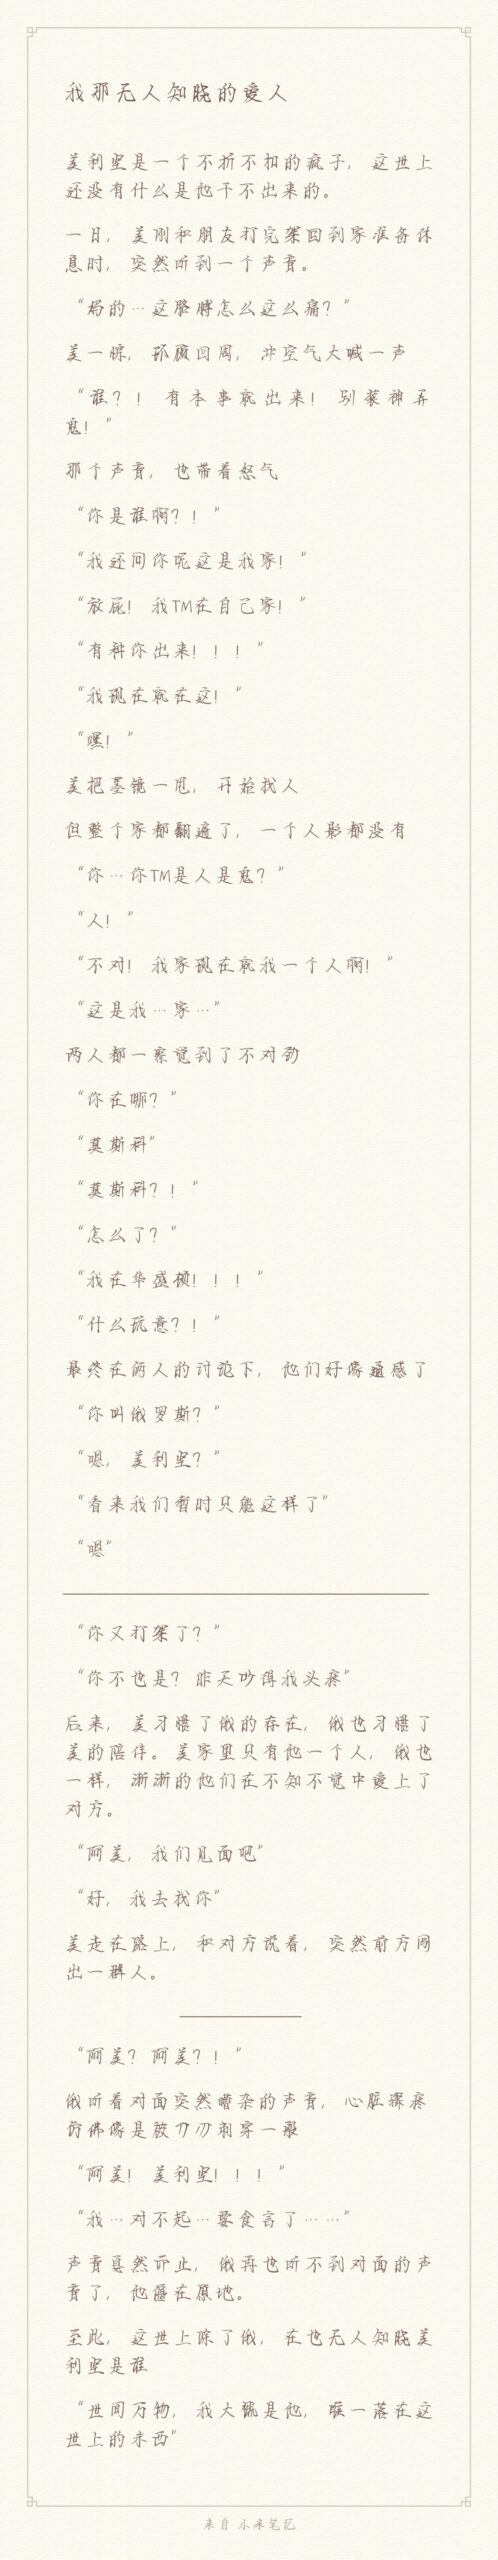 我那无人知晓的爱人
美利坚是一个不折不扣的疯子，这世上
还没有什么是他干不出来的。
一日，美刚和朋友打完架回到家准备休
息时，突然听到一个声音。
“妈的…这胳膊怎么这么痛？”
美一愣，环顾四周，冲空气大喊一声
“谁？！有本事就出来！别装神弄
鬼！”
那个声音，也带着怒气
“你是谁啊？！”
“我还问你呢这是我家！”
“放屁！我TM在自己家！”
“有种你出来！！！”
“我现在就在这！”
“嘿！”
美把墨镜一甩，开始找人
但整个家都翻遍了，一个人影都没有
“你…你TM是人是鬼？”
“人！”
“不对！我家现在就我一个人啊！”
“这是我…家…”
两人都一察觉到了不对劲
“你在哪？”
“莫斯科”
“莫斯科？！”
“怎么了？”
“我在华盛顿！！！”
“什么玩意？！”
最终在俩人的讨论下，他们好像通感了
“你叫俄罗斯？”
“嗯，美利坚？”
“看来我们暂时只能这样了”
“嗯”
“你又打架了？”
“你不也是？昨天吵得我头疼”
后来，美习惯了俄的存在，俄也习惯了
美的陪伴。美家里只有他一个人，俄也
一样，渐渐的他们在不知不觉中爱上了
对方。
“阿美，我们见面吧”
“好，我去找你”
美走在路上，和对方说着，突然前方闯
出一群人。
“阿美？阿美？！”
俄听着对面突然嘈杂的声音，心脏骤疼
仿佛像是被刀刃刺穿一般
“阿美！美利坚！！！”
“我…对不起…要食言了……”
声音戛然而止，俄再也听不到对面的声
音了，他僵在原地。
至此，这世上除了俄，在也无人知晓美
利坚是谁
“世间万物，我大概是他，唯一落在这
世上的东西”
来自 小米笔记